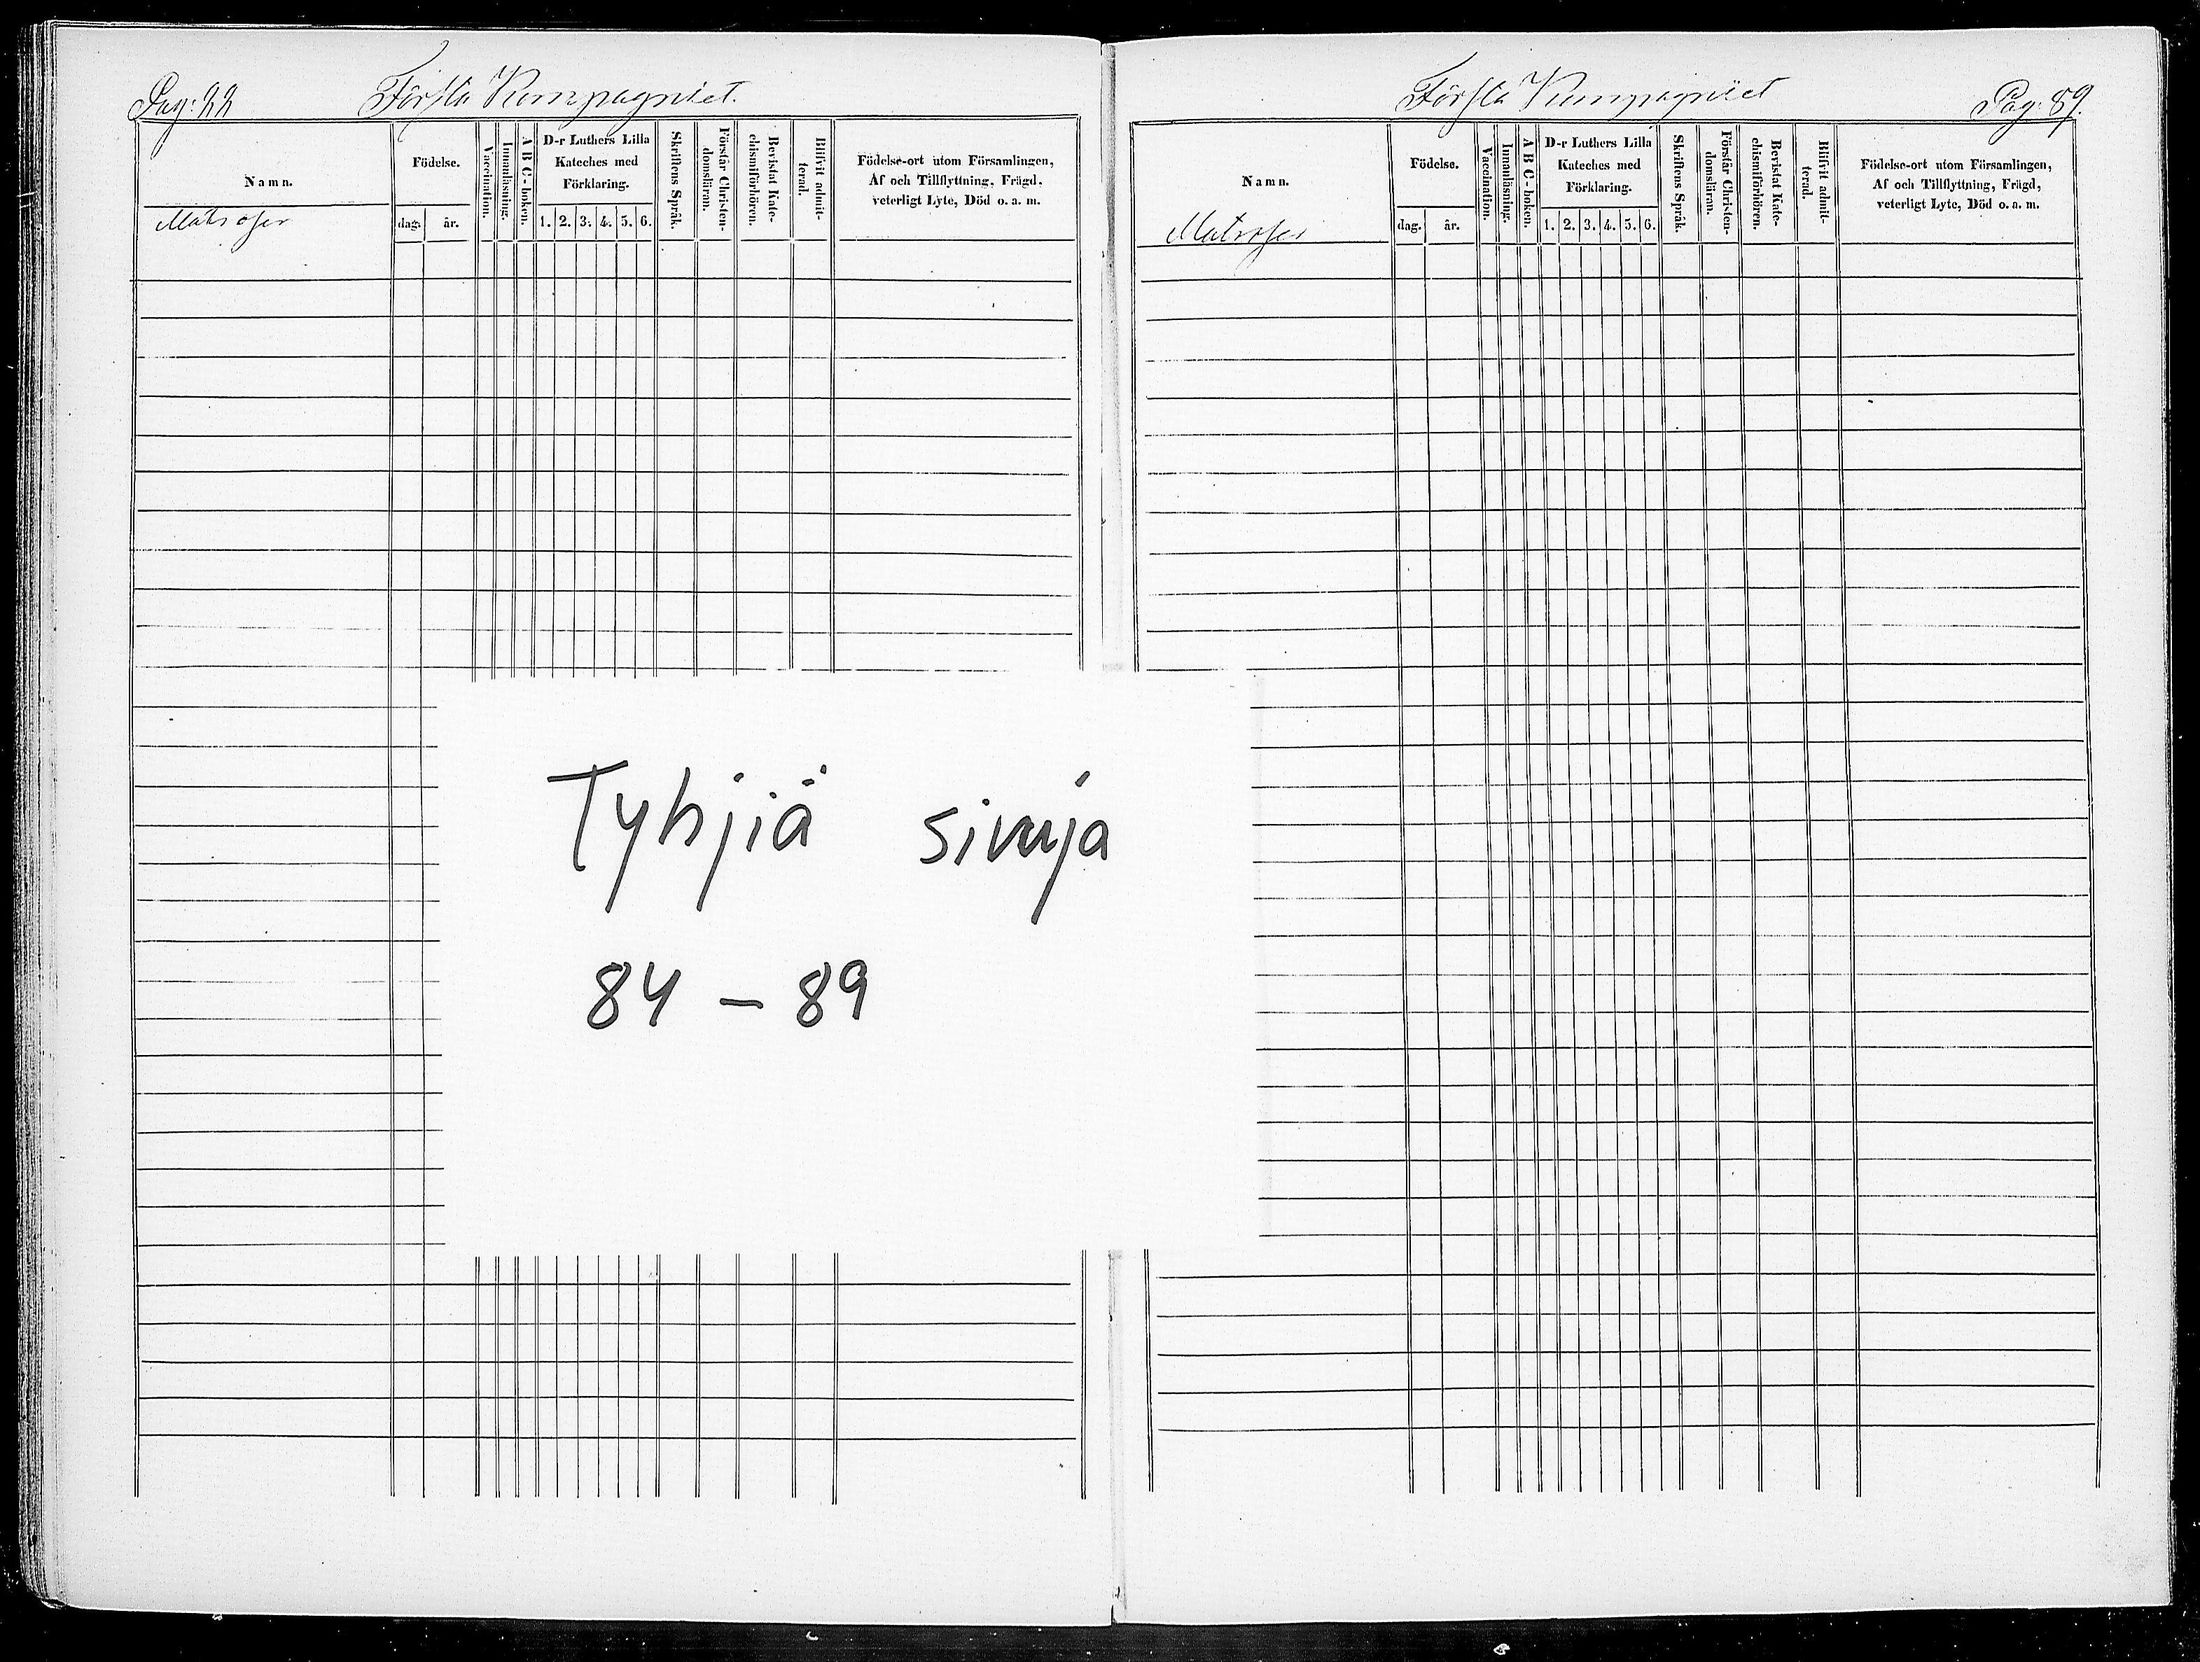 Pag:
Första Kompagniet.
Namn.
Födelse.
dag.
år.
Vaccination.
Innanläsning.
A B C - boken.
D-r Luthers Lilla
Kateches med
Förklaring.
1. 2. 3. 4. 5. 6.
Skriftens Språk.
Förstår Christen-
domsläran.
Bevistat Kate-
chismiförhören.
Blifvit admit-
terad.
Födelse-ort utom Församlingen,
Af och Tillflyttning, Frägd,
veterligt Lyte, Död o. a. m.
Matroser
Första Kompagniet
Pag: 89.
Namn.
Födelse.
dag.
år.
Vaccination.
Innanläsning.
A B C - boken.
D-r Luthers Lilla
Kateches med
Förklaring.
1. 2. 3. 4. 5. 6.
Skriftens Språk.
Förstår Christen-
domsläran.
Bevistat Kate-
chismiförhören.
Blifvit admit-
terad.
Födelse-ort utom Församlingen,
Af och Tillflyttning, Frägd,
veterligt Lyte, Död o. a. m.
Matroser
Tyhjiä sivuja
84 – 89